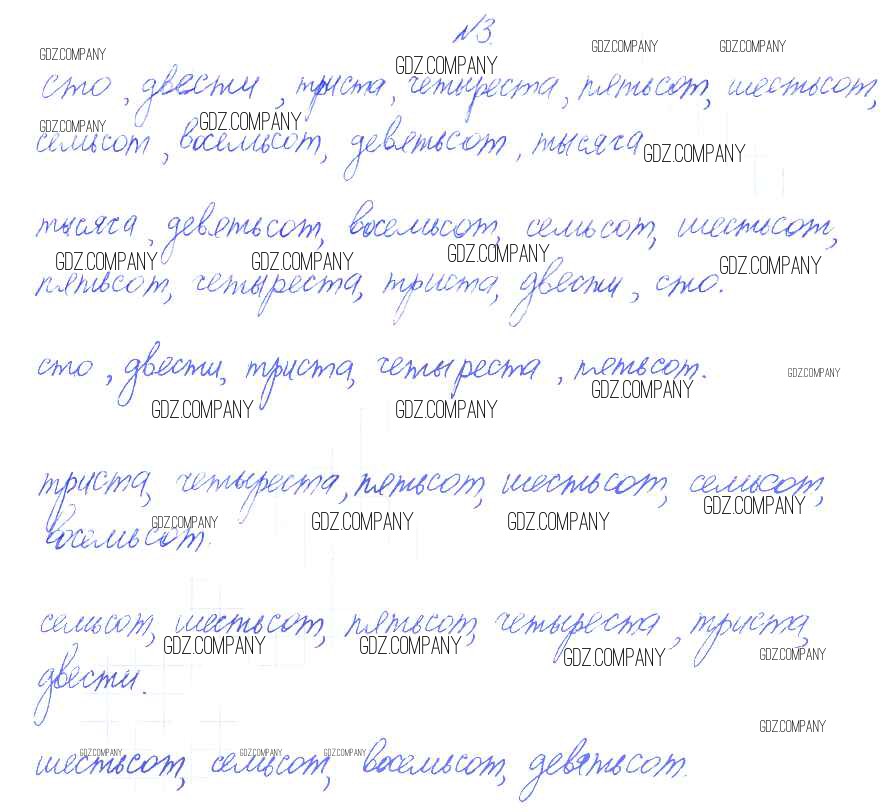 №3.
GDZ.COMPANY GDZ.COMPANY GDZ.COMPANY GDZ.COMPANY
сто, двести, триста, четыреста, пятьсот, шестьсот,
GDZ.COMPANY GDZ.COMPANY
семьсот, восемьсот, девятьсот, тысяча
GDZ.COMPANY
тысяча, девятьсот, восемьсот, семьсот, шестьсот,
GDZ.COMPANY GDZ.COMPANY GDZ.COMPANY GDZ.COMPANY
пятьсот, четыреста, триста, двести, сто.
сто, двести, триста, четыреста, пятьсот.
GDZ.COMPANY GDZ.COMPANY GDZ.COMPANY GDZ.COMPANY
триста, четыреста, пятьсот, шестьсот, семьсот,
GDZ.COMPANY GDZ.COMPANY GDZ.COMPANY GDZ.COMPANY
восемьсот.
семьсот, шестьсот, пятьсот, четыреста, триста,
GDZ.COMPANY GDZ.COMPANY GDZ.COMPANY GDZ.COMPANY
двести.
GDZ.COMPANY
GDZ.COMPANY GDZ.COMPANY GDZ.COMPANY
шестьсот, семьсот, восемьсот, девятьсот.